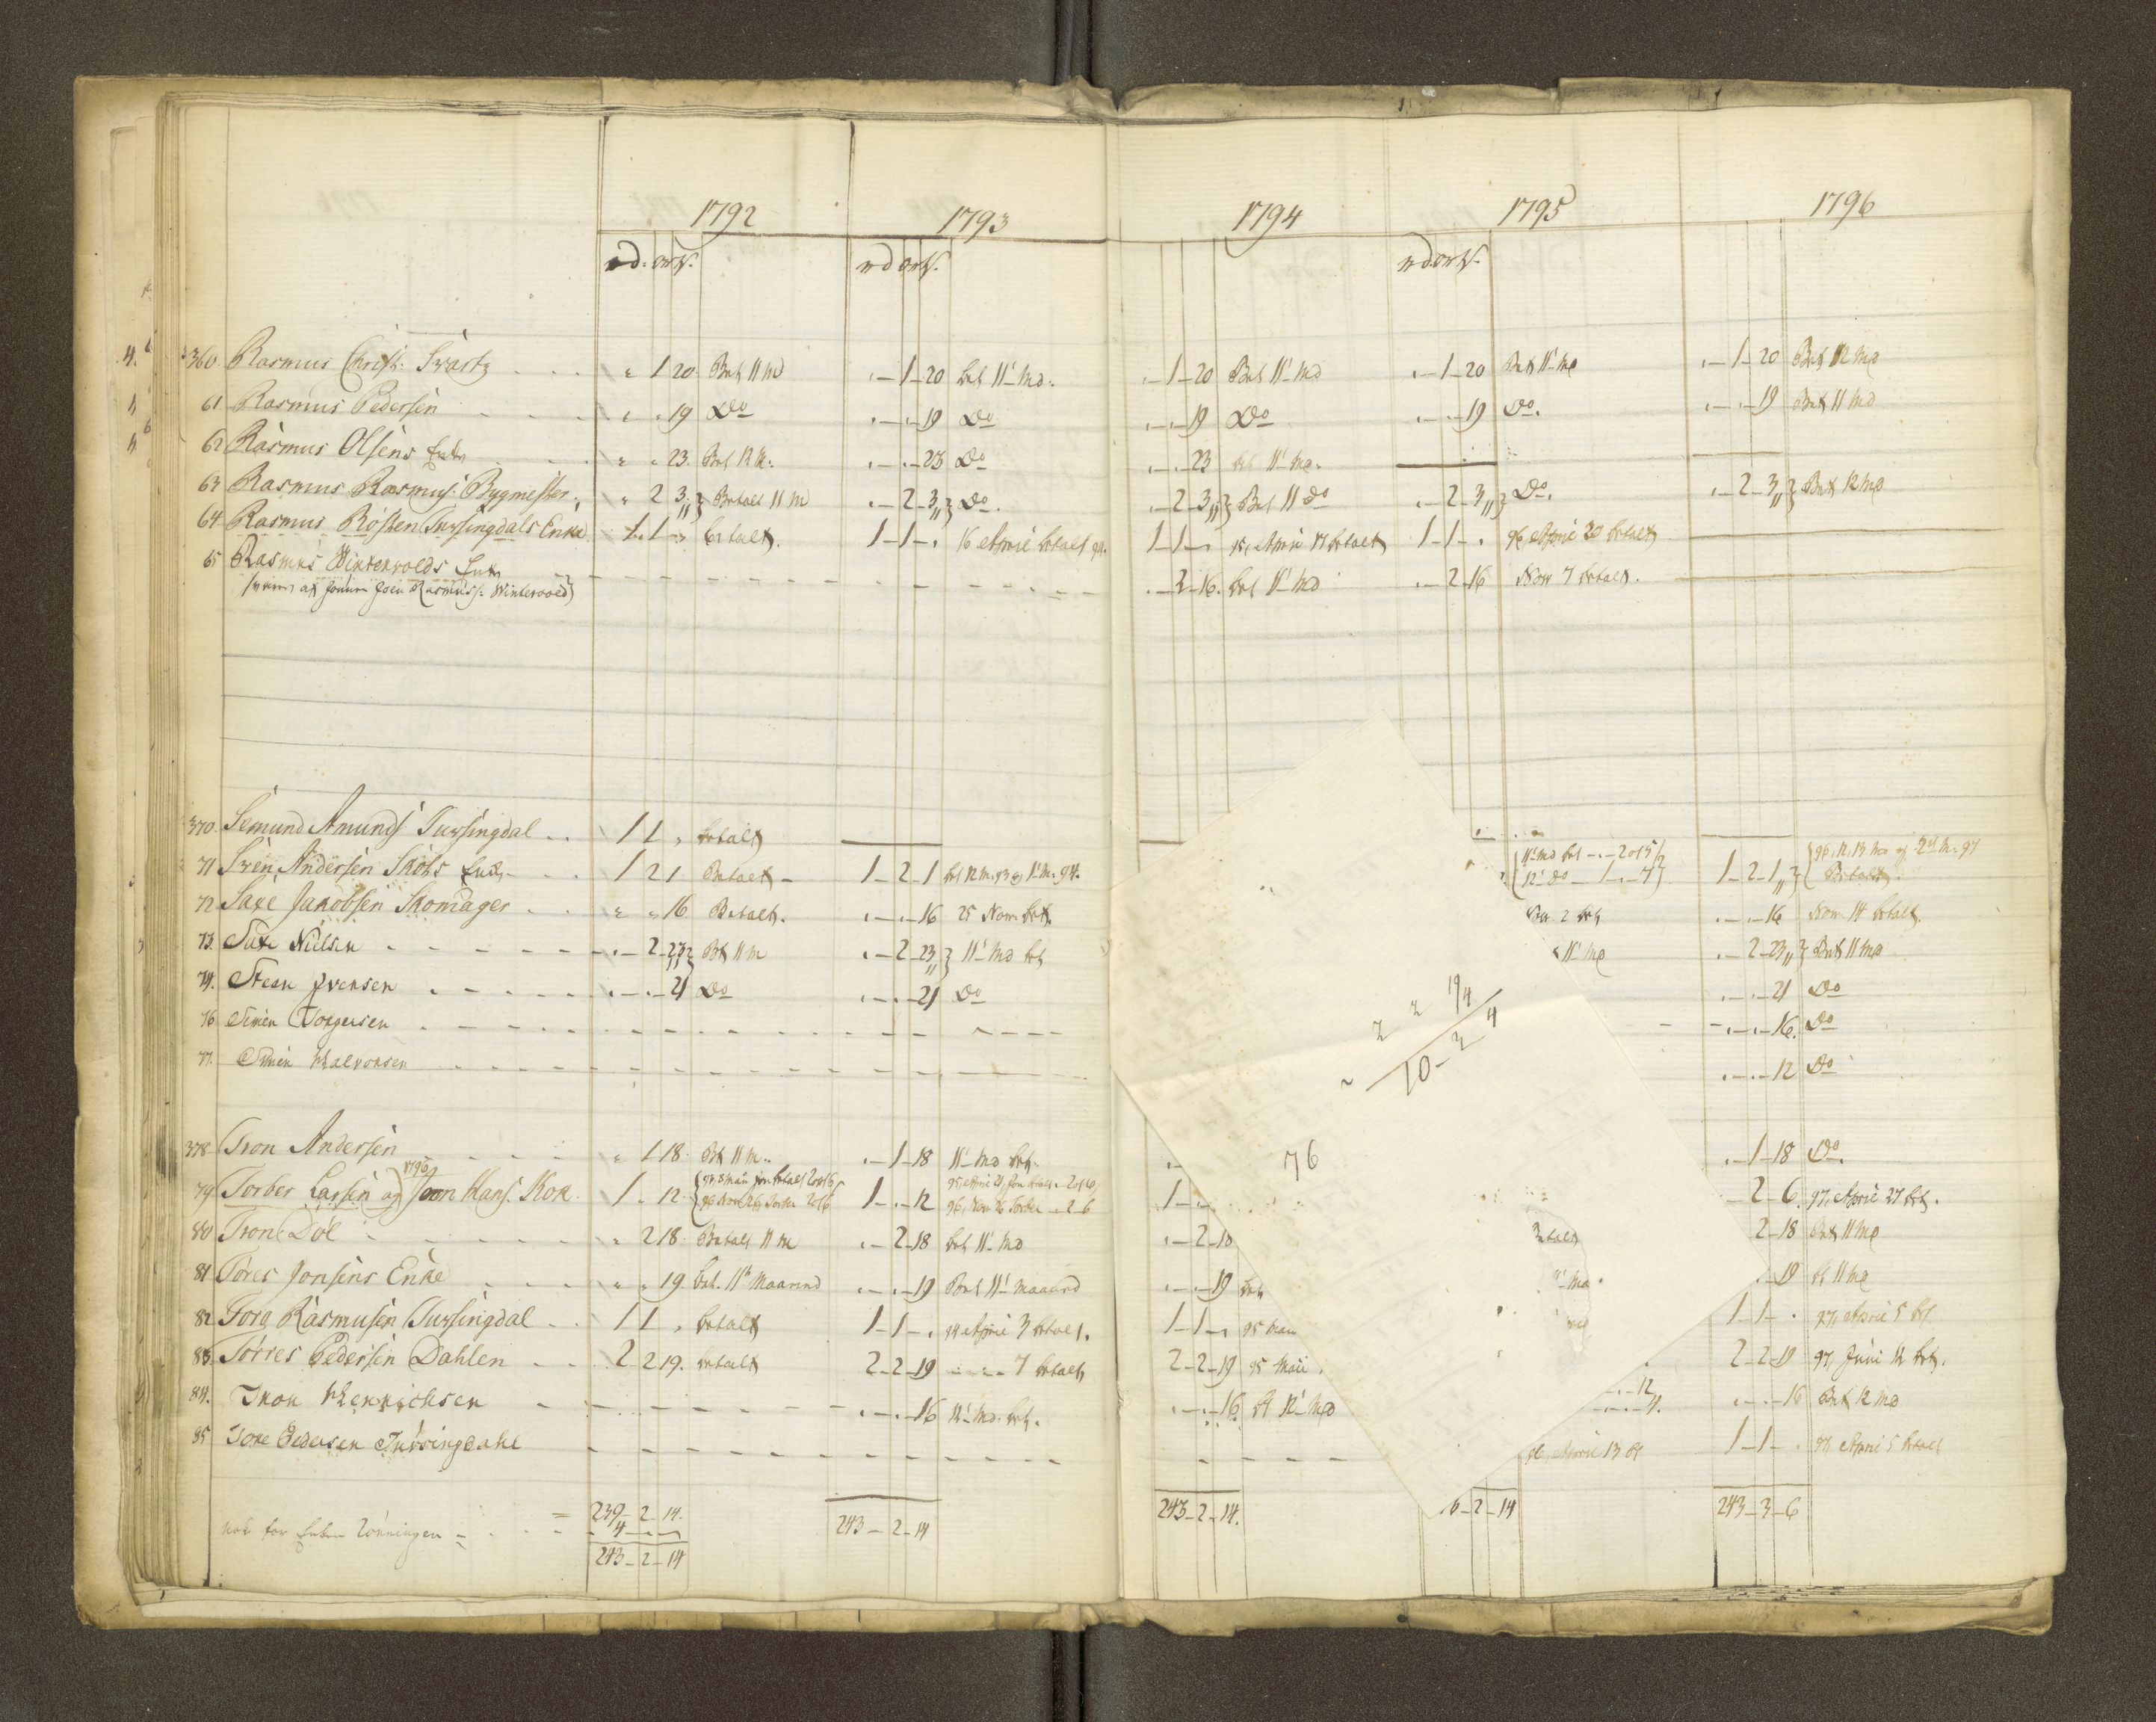 1792 1793 1794 1795 1796
rd. ort s. rd ort s. rd ort s.
360 Rasmus Christ: Svartz . . . " 1 20 Bet 11 Md " - 1 - 20 bet 11' Md. " - 1 - 20 Bet 11' Md " - 1 - 20 Bet 11' Md " - 1 - 20 Bet 12 Md
61 Rasmus Pedersen " " 19 Do " - " - 19 Do " - " - 19 Do " - " - 19 Do. " - " - 19 Bet 11 Md
62 Rasmus Olsens Enke " " 23. Bet 12 M: " - " - 23 Do " - " - 23 bet 11' Md.
63 Rasmus Rasmus: Bygmester. " 2 3 } Betalt 11 M " - 2 - 3 } Do. " - 2 - 3 } Bet 11 Do " - 2 - 3 } Do. " - 2 - 3 } Bet 12 Md
64 Rasmus Røsten Tufsingdals Enke 1. 1 - " betalt. 1 - 1 - " 16 April betalt 94. 1 - 1 - " 95, April 17 betalt 1 - 1 - " 96, April 20 betalt
65 Rasmus Wintervolds Enke " - 2 - 16. bet 11' Md " - 2 - 16 Nov 7 betalt.
Joen Rasmuss: Wintervold)
370. Semund Amunds Tufsingdal . . 1 1 " betalt
71 Sven Andersen Skots Enke 1 2 1 Betalt - 1 - 2 - 1 bet 12 M. 93 og 1' M. 94. 11' Md bet - " - 2 or 5 12' Do 1 - " - 7 1 - 2 - 1 } 96, 12, 13 Md og 2d M. 97 Betalt.
72 Saxe Jakobsen Skomager . . " " 16 Betalt. " - " - 16 25 Nov. bet. Nov 2 bet " - " - 16 Nov 14 betalt.
73. Sute Nielsen " - 2 - 23 } Bt 11 M " - 2 - 23 } 11' Md bet 11' Md " - 2 - 23 } Bet 11 Md
74. Steen Ivensen " - " - 21 Do " - " - 21 Do " - " - 21 Do
76 Simen Torgersen " - " - 16. Do
77. Simen Halvorsen " - " - 12 Do
378 Tron Andersen " 1 18. Bt 11 M. " - 1 - 18 11' Md bet. " - " - 1 - 18 Do.
1796
79 Torber Larsen og Joen Hans. Kok 1 " 12. 1 - " - 12 96, Nov 26 Torber - 2 - 6 1 - " 2 - 6. 97, April 27 bet.
80 Tron Døl " 2 18. Betalt 11 M " - 2 - 18 bet 11' Md " - 2 - 18 Betalt 2 - 18 Bet 11 Md
81 Tøres Jonsens Enke " " 19. bet. 11te Maaned " - " - 19 Bet 11' Maaned " - " - 19 bet 11' Md. - 19 bt 11 Md
82 Tora Rasmusen Tufsingdal . . 1 1 " betalt 1 - 1 - " 94 April 3 betalt. 1 - 1 - " 95 1 - 1 - " 97, April 5 bet
83. Tørres Pedersen Dahlen . . 2 2 19. betalt 2 - 2 - 19 7 betalt 2 - 2 - 19 95 Maii 2 - 2 - 19 97, Juni 12 bet.
84. Tron Henrichsen " - " - 16 12' Md. bet. " - " - 16 bt 12' Md " - " - 12 " - " - 4. " - " - 16 Bet 12 Md
85 Tore Pedersen Tufsingdahl 96, April 13 bt 1 - 1 - " 97 April 5 betalt
2 2 19/4
10 - 3 4
76
239 - 2 - 14. 243 - 2 - 14 243 - 2 - 14. 6 - 2 - 14 243 - 3 - 6
not for Enken Rønningen = 4 - " - "
243 - 2 - 14